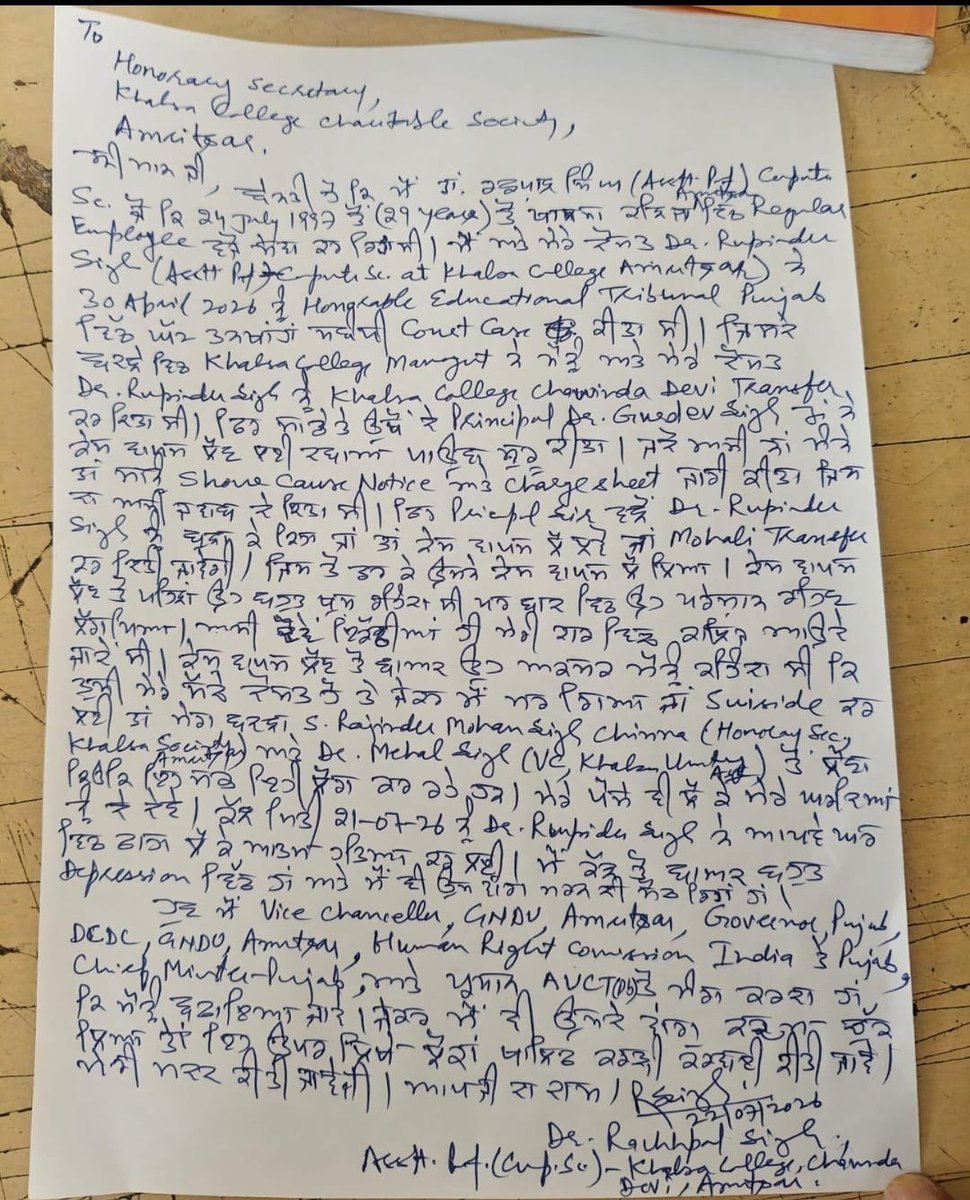 To
Honorary Secretary,
Khalsa College Charitable Society,
Amritsar.
ਸ਼੍ਰੀ ਮਾਨ ਜੀ,
ਬੇਨਤੀ ਹੈ ਕਿ ਮੈਂ ਡਾ. ਰਛਪਾਲ ਸਿੰਘ (Asstt Prof) Computer
Sc. ਜੋ ਕਿ 24 July 1997 ਤੋਂ (29 years) ਤੋਂ ਖਾਲਸਾ ਕਾਲਜ Amritsar ਵਿੱਚ Regular
Employee ਵਜੋਂ ਸੇਵਾ ਕਰ ਰਿਹਾ ਸੀ। ਮੈਂ ਅਤੇ ਮੇਰੇ ਦੋਸਤ Dr. Rupinder
Singh (Asstt Prof Computer Sc. at Khalsa College Amritsar) ਨੇ
30 April 2026 ਨੂੰ Honorable Educational Tribunal Punjab
ਵਿੱਚ ਘੱਟ ਤਨਖਾਹਾਂ ਸਬੰਧੀ Court Case ਕੀਤਾ ਸੀ। ਜਿਸਦੇ
ਬਦਲੇ ਵਿੱਚ Khalsa College Mangmt ਨੇ ਮੈਨੂੰ ਅਤੇ ਮੇਰੇ ਦੋਸਤ
Dr. Rupinder Singh ਨੂੰ Khalsa College Chawinda Devi Transfer
ਕਰ ਦਿੱਤਾ ਸੀ। ਫਿਰ ਸਾਡੇ ਤੇ ਉੱਥੋਂ ਦੇ Principal Dr. Gurdev Singh ਹੁਣਾਂ ਨੇ
ਕੇਸ ਵਾਪਸ ਲੈਣ ਲਈ ਦਬਾਅ ਪਾਉਣਾ ਸ਼ੁਰੂ ਕੀਤਾ। ਜਦੋਂ ਅਸੀਂ ਨਾਂ ਮੰਨੇ
ਤਾਂ ਸਾਨੂੰ Show Cause Notice ਅਤੇ Charge sheet ਜਾਰੀ ਕੀਤਾ ਜਿਸ
ਦਾ ਅਸੀਂ ਜਵਾਬ ਦੇ ਦਿੱਤਾ ਸੀ। ਫਿਰ Principal Sir ਵੱਲੋਂ Dr. Rupinder
Singh ਨੂੰ ਬੁਲਾ ਕੇ ਕਿਹਾ ਜਾਂ ਤਾਂ ਕੇਸ ਵਾਪਸ ਲੈ ਲਵੋ ਜਾਂ Mohali Transfer
ਕਰ ਦਿੱਤੀ ਜਾਵੇਗੀ। ਜਿਸ ਤੋਂ ਡਰ ਕੇ ਉਸਨੇ ਕੇਸ ਵਾਪਸ ਲੈ ਲਿਆ। ਕੇਸ ਵਾਪਸ
ਲੈਣ ਤੋਂ ਪਹਿਲਾਂ ਉਹ ਬਹੁਤ ਖੁਸ਼ ਰਹਿੰਦਾ ਸੀ ਪਰ ਬਾਦ ਵਿੱਚ ਉਹ ਪਰੇਸ਼ਾਨ ਰਹਿਣ
ਲੱਗ ਪਿਆ। ਅਸੀਂ ਦੋਵੇਂ ਇਕੱਠੀਆਂ ਹੀ ਮੇਰੀ ਕਾਰ ਵਿੱਚ ਕਾਲਜ ਆਉਂਦੇ
ਜਾਂਦੇ ਸੀ। ਕੇਸ ਵਾਪਸ ਲੈਣ ਤੋਂ ਬਾਅਦ ਉਹ ਅਕਸਰ ਮੈਨੂੰ ਕਹਿੰਦਾ ਸੀ ਕਿ
ਤੁਸੀਂ ਮੇਰੇ ਸੱਚੇ ਦੋਸਤ ਹੋ ਤੇ ਜੇਕਰ ਮੈਂ ਮਰ ਗਿਆ ਜਾਂ Suicide ਕਰ
ਲਈ ਤਾਂ ਮੇਰਾ ਬਦਲਾ S. Rajinder Mohan Singh Chinna (Honorary Sec,
Khalsa Society Amritsar) ਅਤੇ Dr. Mehal Singh (VC, Khalsa University Asr) ਤੋਂ ਲੈਣਾ
ਕਿਉਂਕਿ ਇਹ ਸਭ ਇਹੀ ਲੋਗ ਕਰ ਰਹੇ ਹਨ। ਮੇਰੇ ਪੈਸੇ ਵੀ ਲੈ ਕੇ ਮੇਰੇ ਘਰਦਿਆਂ
ਨੂੰ ਦੇ ਦੇਵੋ। ਕੱਲ ਮਿਤੀ 21-07-26 ਨੂੰ Dr. Rupinder Singh ਨੇ ਆਪਣੇ ਘਰ
ਵਿੱਚ ਫਾਹਾ ਲੈ ਕੇ ਆਤਮ ਹੱਤਿਆ ਕਰ ਲਈ। ਮੈਂ ਕੱਲ ਤੋਂ ਬਾਅਦ ਬਹੁਤ
Depression ਵਿੱਚ ਹਾਂ ਅਤੇ ਮੈਂ ਵੀ ਉਸ ਵਾਂਗ ਮਰਨ ਦੀ ਸੋਚ ਰਿਹਾ ਹਾਂ।
ਹੁਣ ਮੈਂ Vice Chancellor, GNDU, Amritsar, Governor, Punjab,
DCDC, GNDU, Amritsar, Human Right Comission India ਤੇ Punjab,
Chief Minister Punjab, ਅਤੇ ਪ੍ਰਧਾਨ AUCT(Pb) ਤੋਂ ਮੰਗ ਕਰਦਾ ਹਾਂ
ਕਿ ਮੈਨੂੰ ਬਚਾਇਆ ਜਾਵੇ। ਜੇਕਰ ਮੈਂ ਵੀ ਉਸਦੇ ਵਾਂਗ ਕਦਮ ਚੁੱਕ
ਲਿਆ ਤਾਂ ਇਹ ਉਪਰ ਲਿਖੇ ਲੋਕਾਂ ਖਿਲਾਫ ਕਰੜੀ ਕਾਰਵਾਈ ਕੀਤੀ ਜਾਵੇ।
ਮੇਰੀ ਮਦਦ ਕੀਤੀ ਜਾਵੇ ਜੀ। ਆਪ ਜੀ ਦਾ ਦਾਸ।
22/07/2026
Dr. Rachhpal Singh,
Asstt. Prof. (Comp. Sc.) - Khalsa College, Chawinda
Devi, Amritsar.